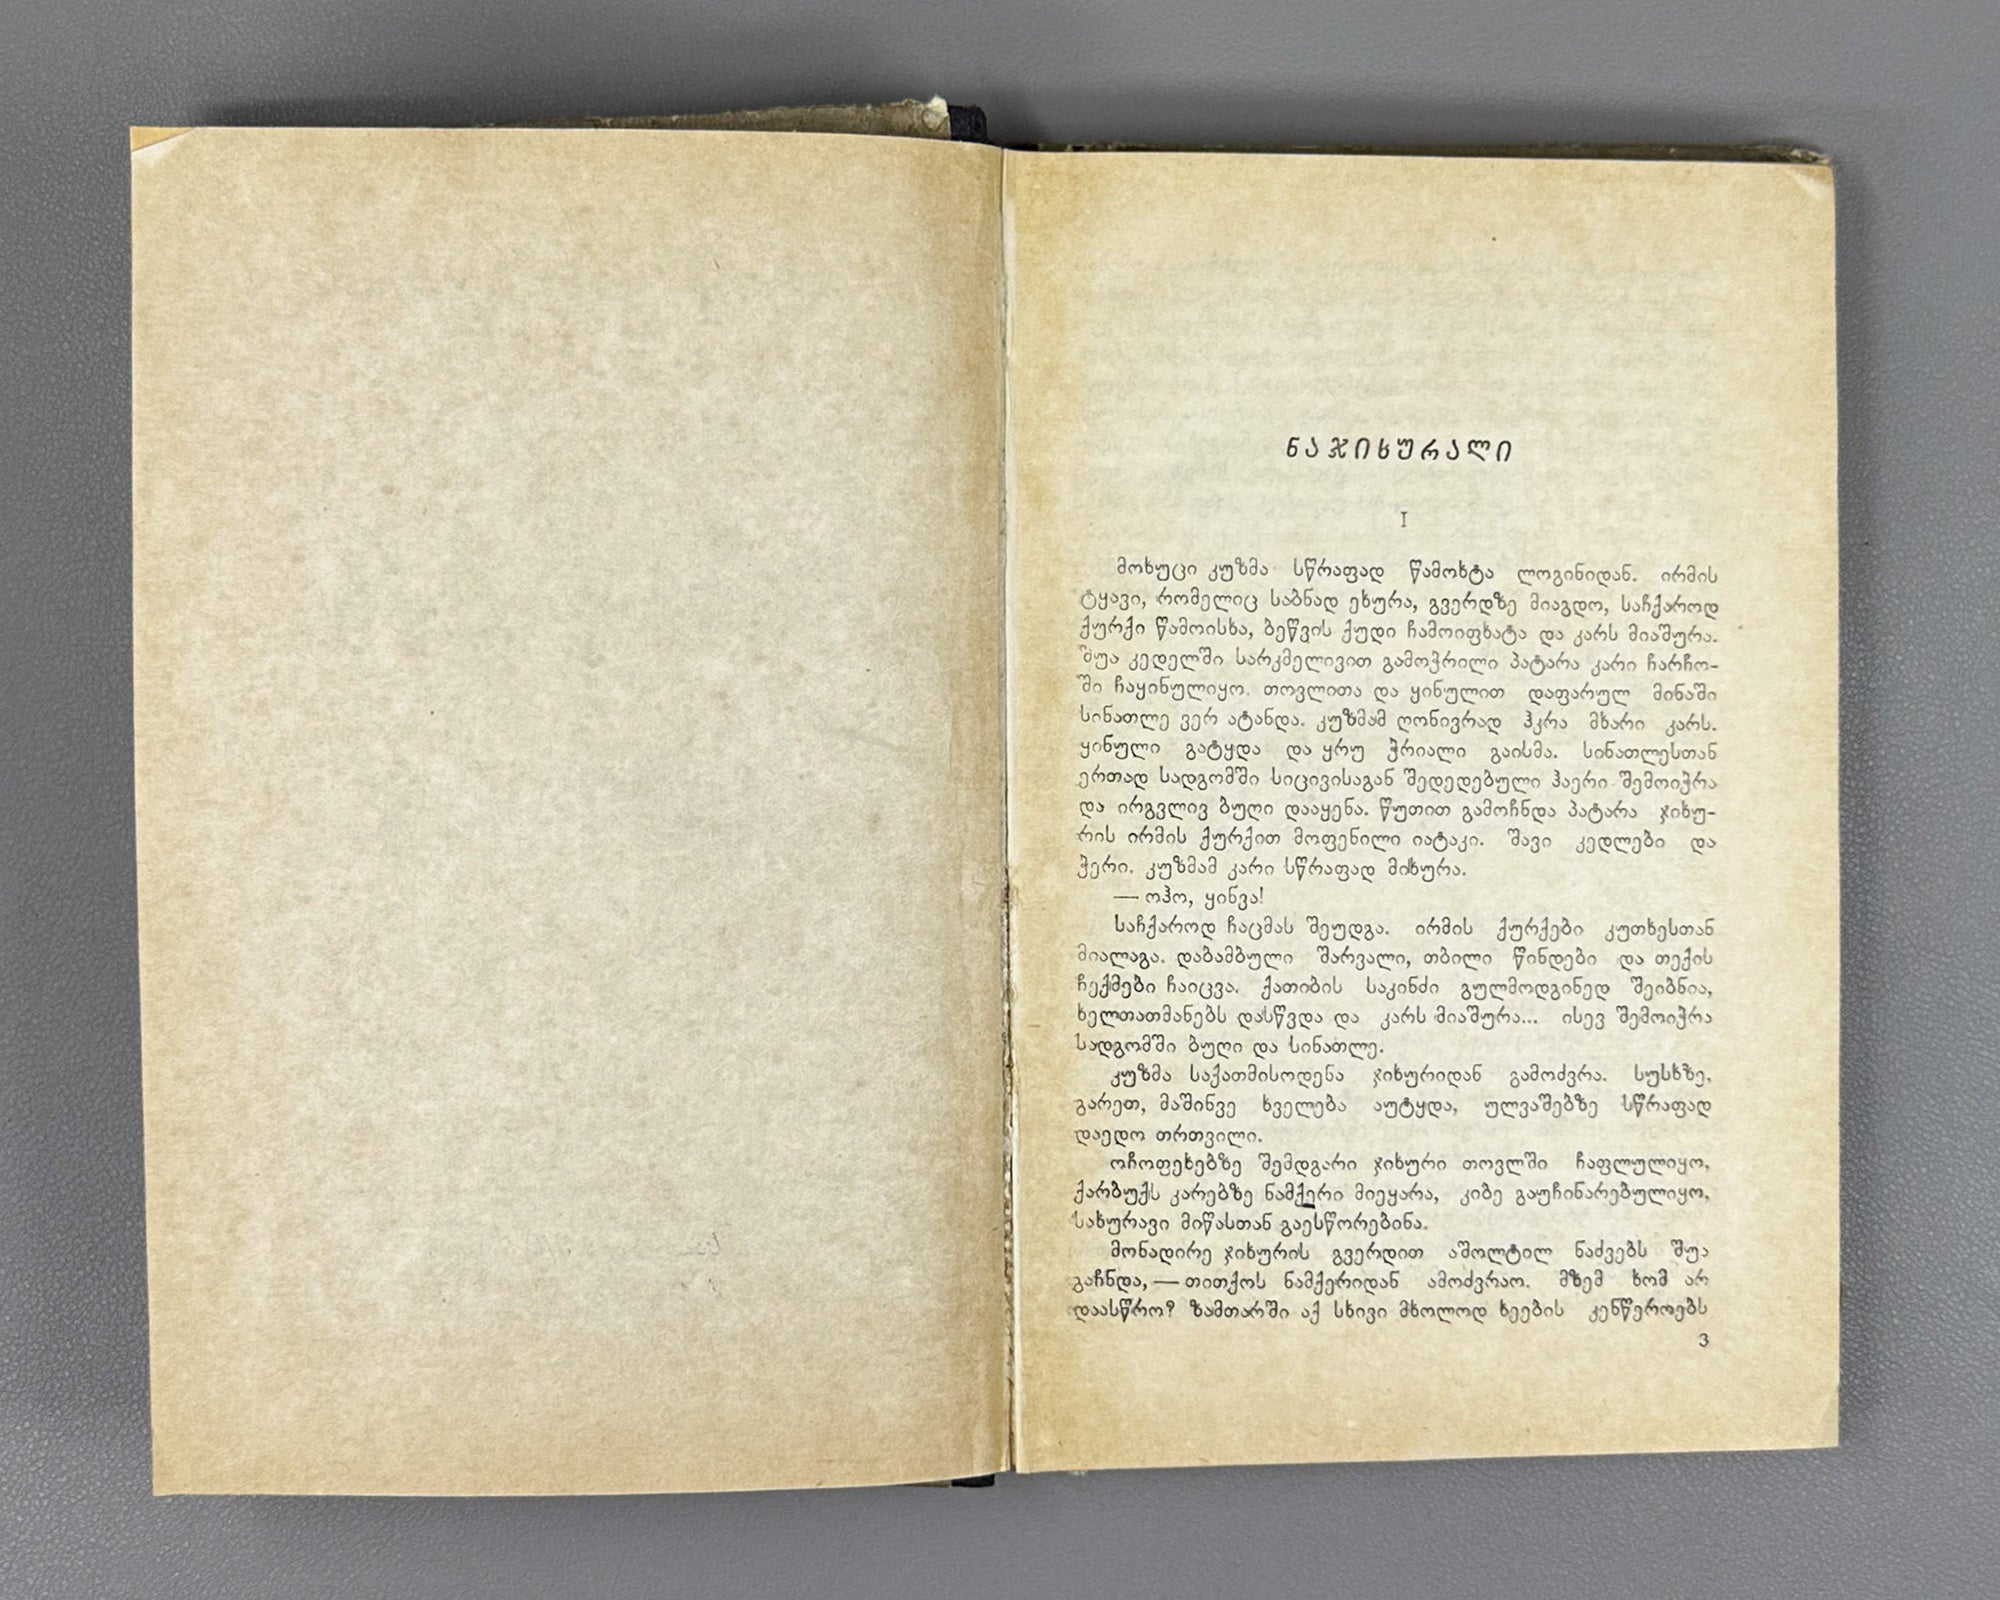 ნაჯიხურალი
I
მოხუცი კუზმა სწრაფად წამოხტა ლოგინიდან. ირმის
ტყავი, რომელიც საბნად ეხურა, გვერდზე მიაგდო, საჩქაროდ
ქურქი წამოისხა, ბეწვის ქუდი ჩამოიფხატა და კარს მიაშურა.
შუა კედელში სარკმელივით გამოჭრილი პატარა კარი ჩარჩო-
ში ჩაყინულიყო. თოვლითა და ყინულით დაფარულ მინაში
სინათლე ვერ ატანდა. კუზმამ ღონივრად ჰკრა მხარი კარს.
ყინული გატყდა და ყრუ ჭრიალი გაისმა. სინათლესთან
ერთად სადგომში სიცივისაგან შედედებული ჰაერი შემოიჭრა
და ირგვლივ ბუღი დააყენა. წუთით გამოჩნდა პატარა ჯიხუ-
რის ირმის ქურქით მოფენილი იატაკი. შავი კედლები და
ჭერი. კუზმამ კარი სწრაფად მიხურა.
— ოჰო, ყინვა!
საჩქაროდ ჩაცმას შეუდგა. ირმის ქურქები კუთხესთან
მიალაგა. დაბამბული შარვალი, თბილი წინდები და თექის
ჩექმები ჩაიცვა. ქათიბის საკინძი გულმოდგინედ შეიბნია,
ხელთათმანებს დასწვდა და კარს მიაშურა... ისევ შემოიჭრა
სადგომში ბუღი და სინათლე.
კუზმა საქათმისოდენა ჯიხურიდან გამოძვრა. სუსხზე,
გარეთ, მაშინვე ხველება აუტყდა, ულვაშებზე სწრაფად
დაედო თრთვილი.
ოჩოფეხებზე შემდგარი ჯიხური თოვლში ჩაფლულიყო,
ქარბუქს კარებზე ნამქერი მიეყარა, კიბე გაუჩინარებულიყო,
სახურავი მიწასთან გაესწორებინა.
მონადირე ჯიხურის გვერდით აშოლტილ ნაძვებს შუა
გაჩნდა, — თითქოს ნამქერიდან ამოძვრაო. მზემ ხომ არ
დაასწრო? ზამთარში აქ სხივი მხოლოდ ხეების კენწეროებს
3